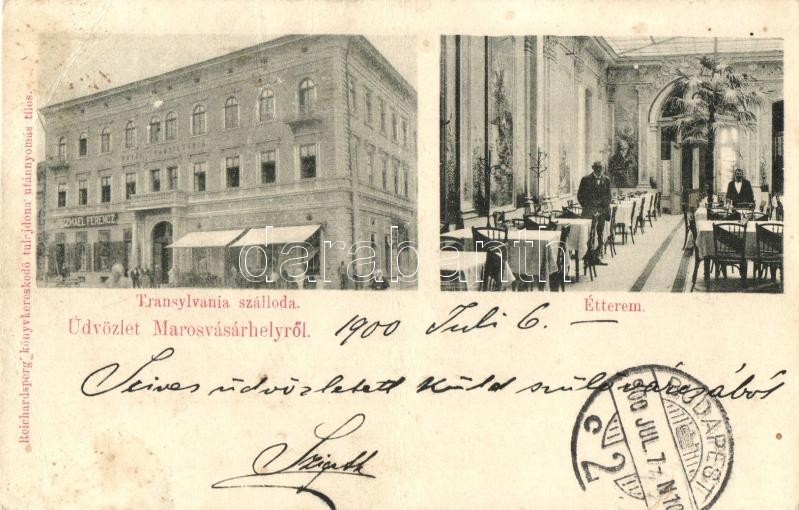 IZMAEL FERENCZ
Transylvania szálloda.
Étterem.
Üdvözlet Marosvásárhelyről.
1900 Juli 6. —
Szives üdvözletett küld szülővárosából
Reichardsperg könyvkereskedő tulajdona utánnyomás tilos.
BUDAPEST
900 JUL. 7
N10
72
C
darabanth